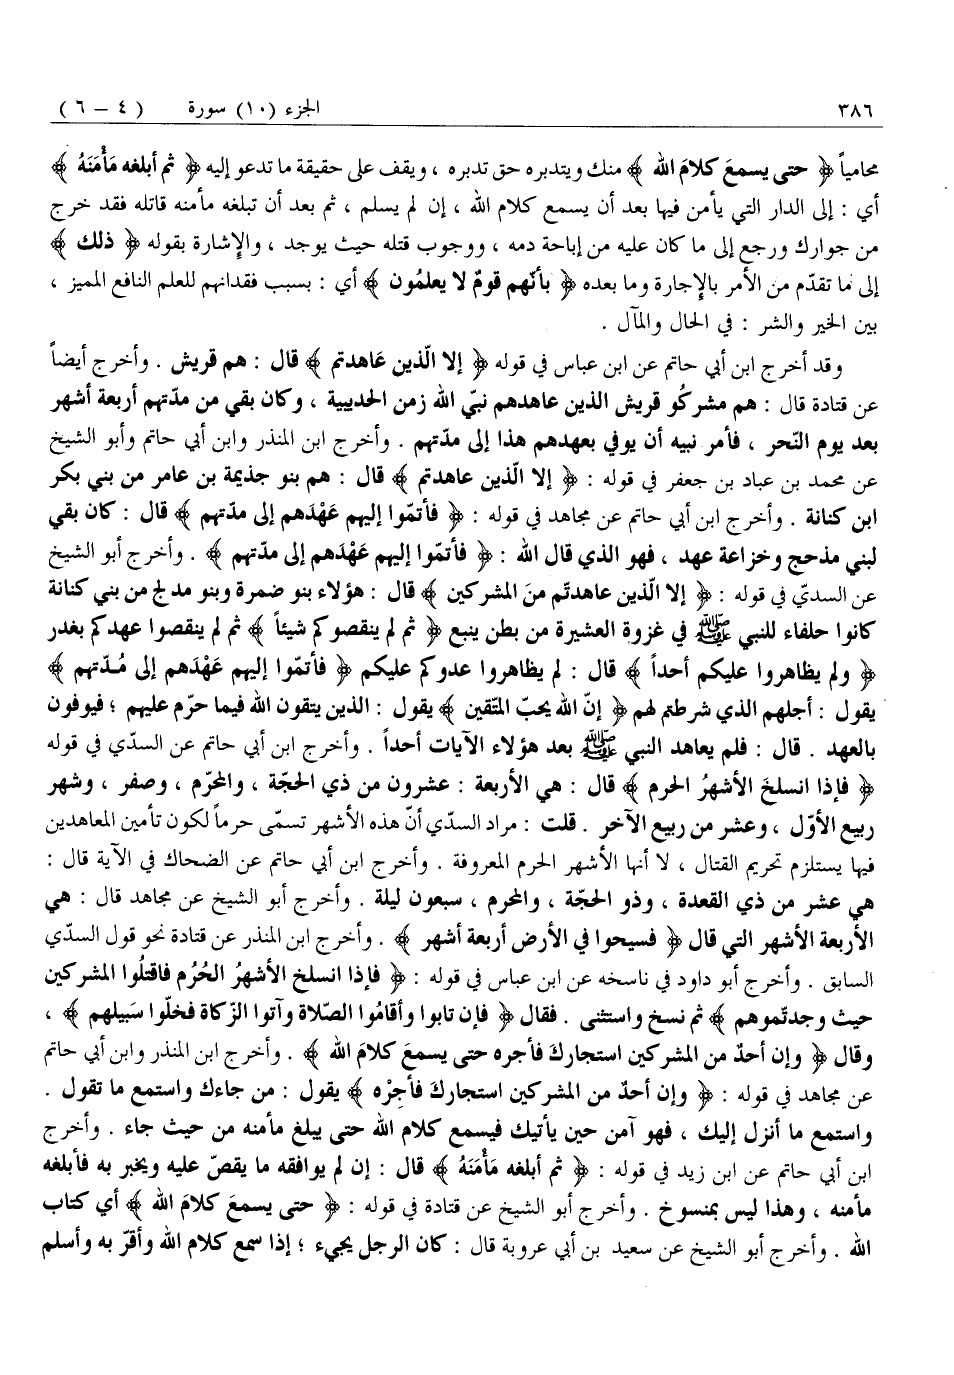 ٣٨٦ الجزء (١٠) سورة (٤ – ٦)
محامياً ﴿ حتى يسمعَ كلامَ الله ﴾ منك ويتدبره حق تدبره ، ويقف على حقيقة ما تدعو إليه ﴿ ثم أبلغه مَأْمَنَهُ ﴾
أي : إلى الدار التي يأمن فيها بعد أن يسمع كلام الله ، إن لم يسلم ، ثم بعد أن تبلغه مأمنه قاتله فقد خرج
من جوارك ورجع إلى ما كان عليه من إباحة دمه ، ووجوب قتله حيث يوجد ، والإشارة بقوله ﴿ ذلك ﴾
إلى ما تقدّم من الأمر بالإجارة وما بعده ﴿ بأنّهم قومٌ لا يعلمُون ﴾ أي : بسبب فقدانهم للعلم النافع المميز ،
بين الخير والشر : في الحال والمآل .
وقد أخرج ابن أبي حاتم عن ابن عباس في قوله ﴿ إلا الّذين عَاهدتم ﴾ قال : هم قريش . وأخرج أيضاً
عن قتادة قال : هم مشركُو قريش الذين عاهدهم نبيّ الله زمن الحديبية ، وكان بقي من مدّتهم أربعة أشهر
بعد يوم النّحر ، فأمر نبيه أن يوفي بعهدهم هذا إلى مدّتهم . وأخرج ابن المنذر وابن أبي حاتم وأبو الشيخ
عن محمد بن عباد بن جعفر في قوله : ﴿ إلا الّذين عاهدتم ﴾ قال : هم بنو جذيمة بن عامر من بني بكر
ابن كنانة . وأخرج ابن أبي حاتم عن مجاهد في قوله : ﴿ فأتمّوا إليهم عَهْدَهم إلى مدّتهم ﴾ قال : كان بقي
لبني مذحج وخزاعة عهد ، فهو الذي قال الله : ﴿ فأتمّوا إليهم عَهْدَهم إلى مدّتهم ﴾ . وأخرج أبو الشيخ
عن السديّ في قوله : ﴿ إلا الّذين عاهدتّم منَ المشركين ﴾ قال : هؤلاء بنو ضمرة وبنو مدلج من بني كنانة
كانوا حلفاء للنبي ﷺ في غزوة العشيرة من بطن ينبع ﴿ ثم لم ينقصوكم شيئاً ﴾ ثم لم ينقصوا عهدكم بغدر
﴿ ولم يظاهروا عليكم أحداً ﴾ قال : لم يظاهروا عدوكم عليكم ﴿ فأتمّوا إليهم عَهْدَهم إلى مُدّتهم ﴾
يقول : أجلهم الذي شرطتم لهم ﴿ إنّ الله يحبّ المتّقين ﴾ يقول : الذين يتقون الله فيما حرّم عليهم ؛ فيوفون
بالعهد . قال : فلم يعاهد النبي ﷺ بعد هؤلاء الآيات أحداً . وأخرج ابن أبي حاتم عن السدّي في قوله
﴿ فإذا انسلخَ الأشهرُ الحرم ﴾ قال : هي الأربعة : عشرون من ذي الحجّة ، والمحرّم ، وصفر ، وشهر
ربيع الأوّل ، وعشر من ربيع الآخر . قلت : مراد السدّي أنّ هذه الأشهر تسمّى حرماً لكون تأمين المعاهدين
فيها يستلزم تحريم القتال ، لا أنها الأشهر الحرم المعروفة . وأخرج ابن أبي حاتم عن الضحاك في الآية قال :
هي عشر من ذي القعدة ، وذو الحجّة ، والمحرم ، سبعون ليلة . وأخرج أبو الشيخ عن مجاهد قال : هي
الأربعة الأشهر التي قال ﴿ فسيحوا في الأرض أربعة أشهر ﴾ . وأخرج ابن المنذر عن قتادة نحو قول السدّي
السابق . وأخرج أبو داود في ناسخه عن ابن عباس في قوله : ﴿ فإذا انسلخ الأشهرُ الحُرُم فاقتلُوا المشركين
حيث وجدتّموهم ﴾ ثم نسخ واستثنى . فقال ﴿ فإن تابوا وأقامُوا الصّلاة وآتوا الزّكاة فخلّوا سَبيلهم ﴾ ،
وقال ﴿ وإن أحدٌ من المشركين استجاركَ فأجره حتى يسمعَ كلامَ الله ﴾ . وأخرج ابن المنذر وابن أبي حاتم
عن مجاهد في قوله : ﴿ وإن أحدٌ من المشركين استجاركَ فأجِرْه ﴾ يقول : من جاءك واستمع ما تقول .
واستمع ما أنزل إليك ، فهو آمن حين يأتيك فيسمع كلام الله حتى يبلغ مأمنه من حيث جاء . وأخرج
ابن أبي حاتم عن ابن زيد في قوله : ﴿ ثم أبلغه مَأْمَنَهُ ﴾ قال : إن لم يوافقه ما يقصّ عليه ويخبر به فأبلغه
مأمنه ، وهذا ليس بمنسوخ . وأخرج أبو الشيخ عن قتادة في قوله : ﴿ حتى يسمعَ كلامَ الله ﴾ أي كتاب
الله . وأخرج أبو الشيخ عن سعيد بن أبي عروبة قال : كان الرجل يجيء ؛ إذا سمع كلام الله وأقرّ به وأسلم